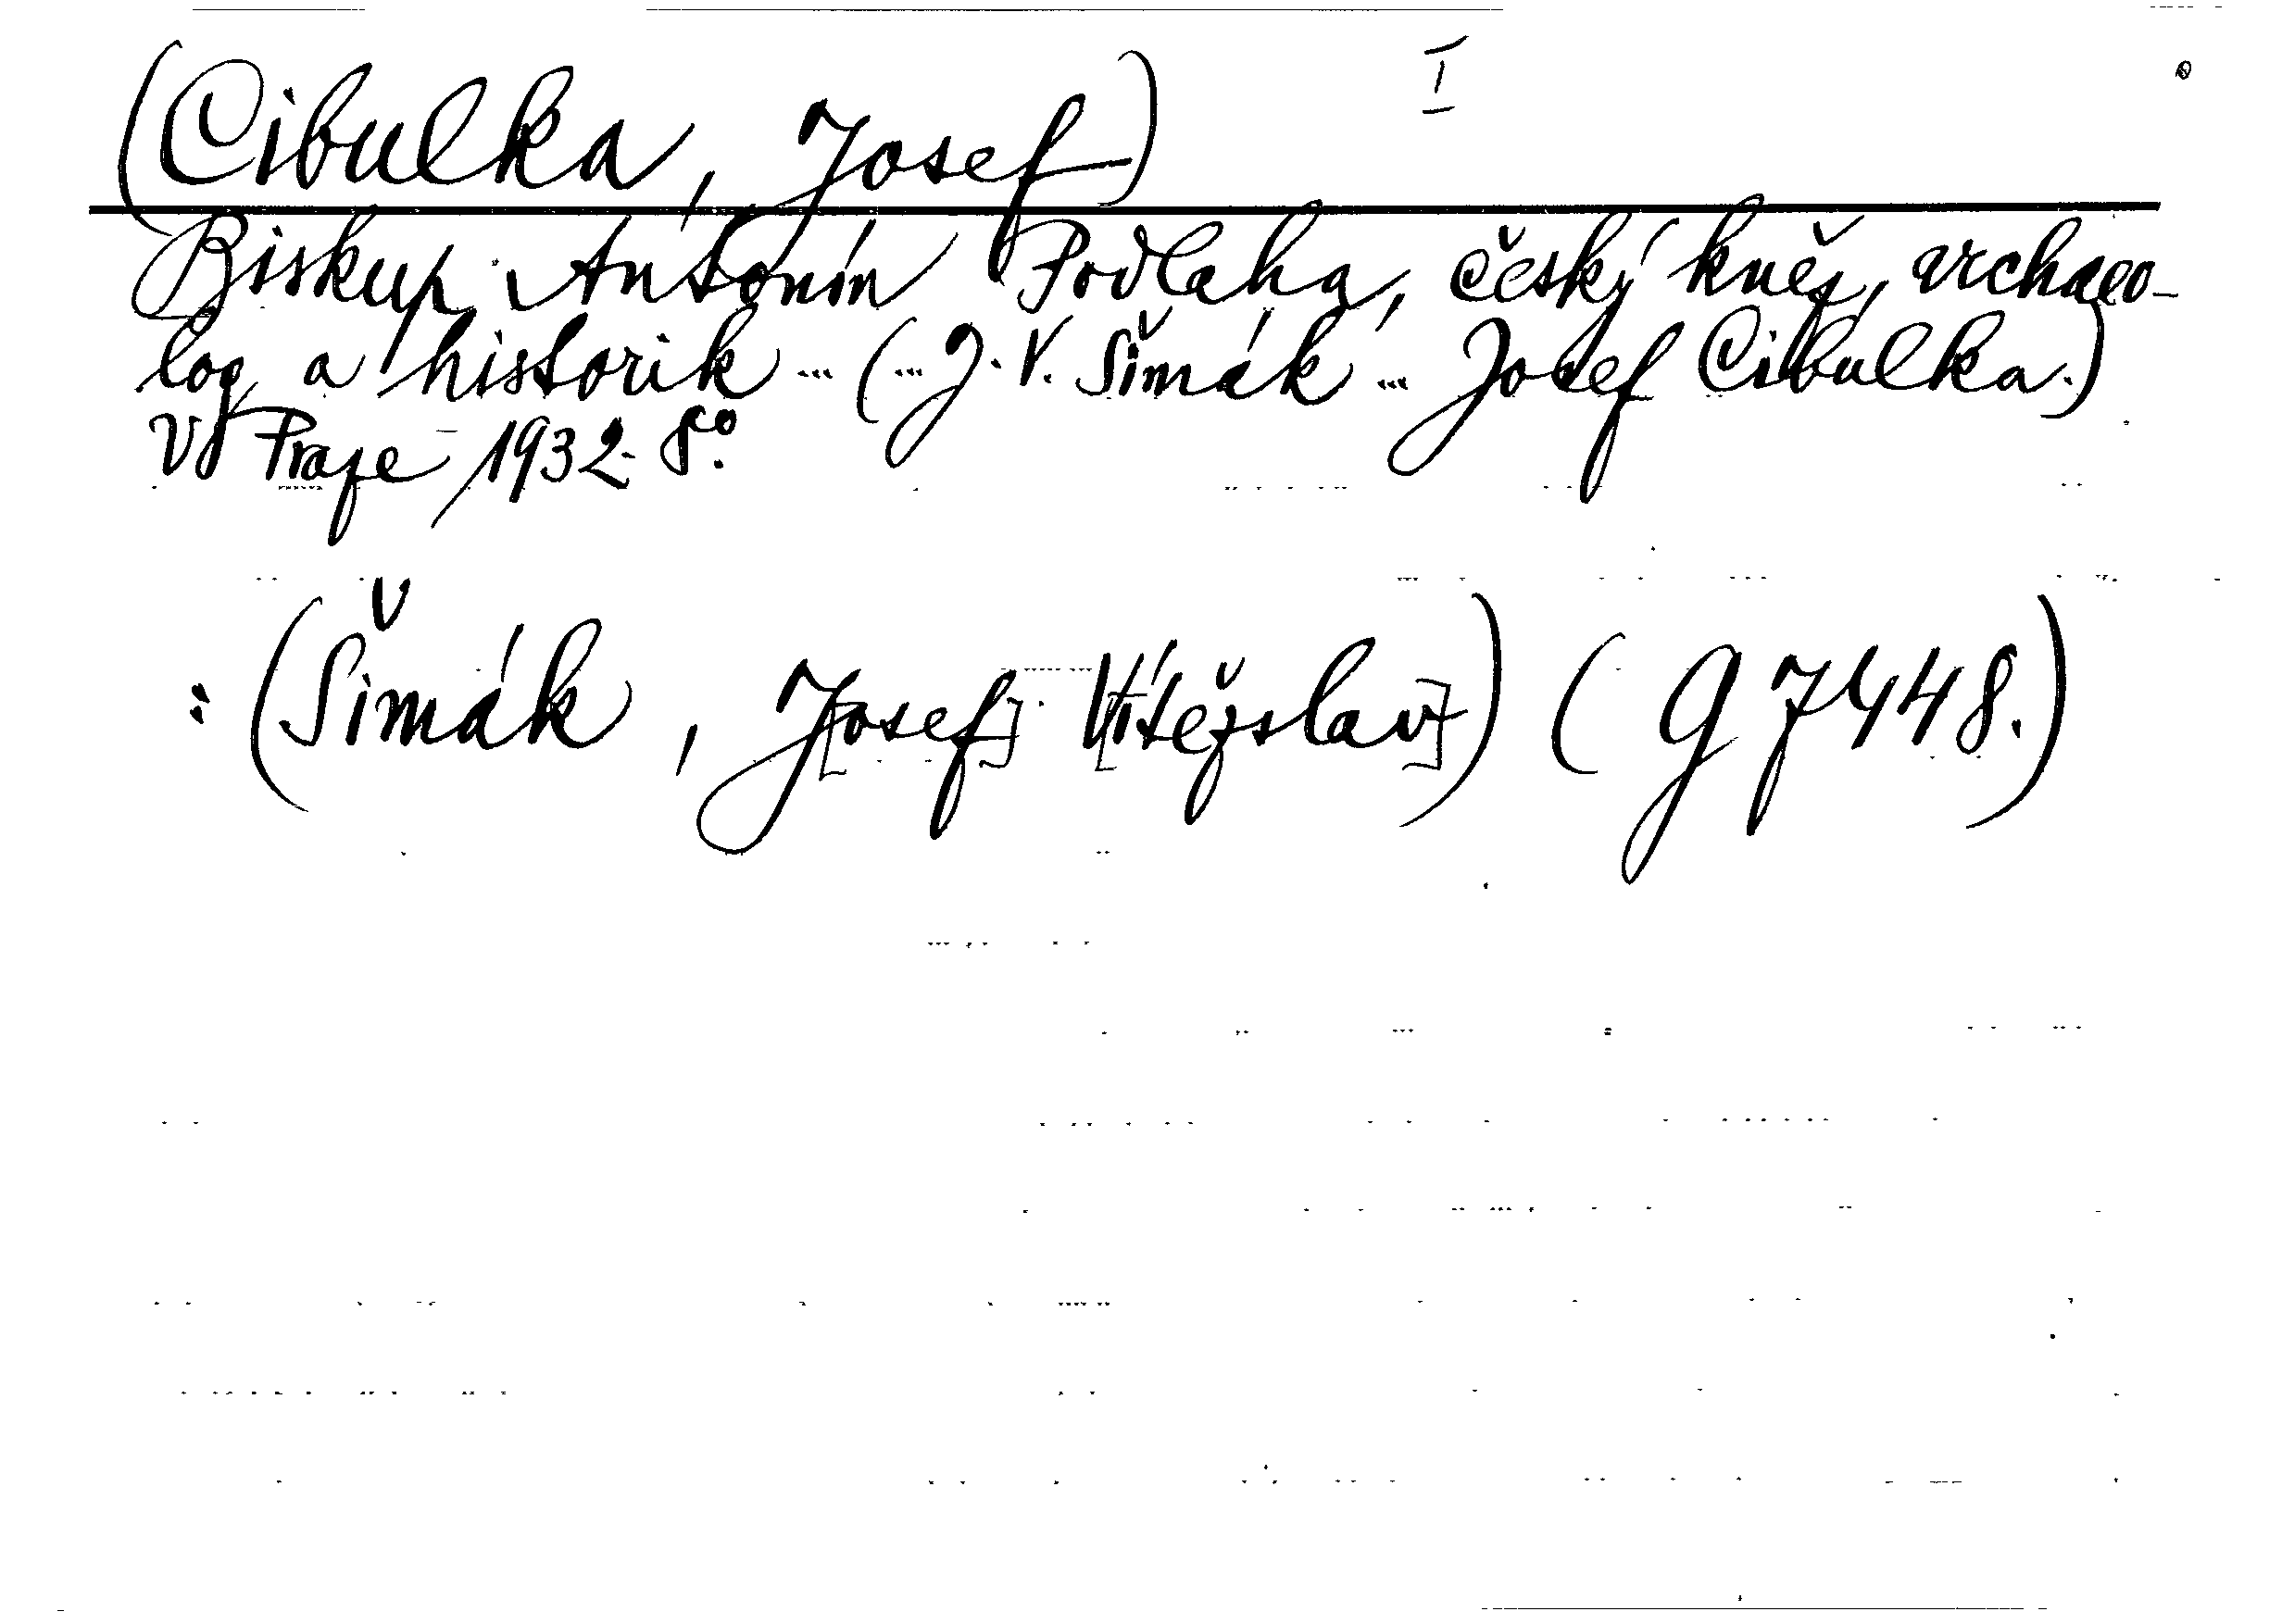 (Cibulka, Josef) I
Biskup Antonín Podlaha, český kněz, archaeo-
log a historik ... (... J. V. Šimák ... Josef Cibulka.)
V Praze 1932. 8°.
: (Šimák, J[osef]. V[ítězslav]) (G 7448.)